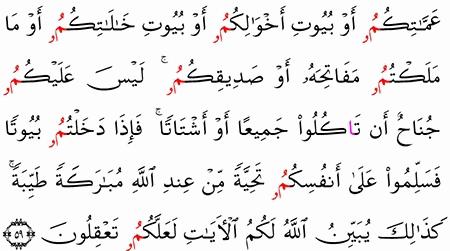 عَمَّٰتِكُمُۥٓ أَوْ بُيُوتِ أَخْوَٰلِكُمُۥٓ أَوْ بُيُوتِ خَٰلَٰتِكُمُۥٓ أَوْ مَا
مَلَكْتُمُۥ مَفَاتِحَهُۥٓ أَوْ صَدِيقِكُمُۥ ۚ لَيْسَ عَلَيْكُمُۥ
جُنَاحٌ أَن تَاكُلُوا۟ جَمِيعًا أَوْ أَشْتَاتًا ۚ فَإِذَا دَخَلْتُمُۥ بُيُوتًا
فَسَلِّمُوا۟ عَلَىٰٓ أَنفُسِكُمُۥ تَحِيَّةً مِّنْ عِندِ ٱللَّهِ مُبَٰرَكَةً طَيِّبَةً ۚ
كَذَٰلِكَ يُبَيِّنُ ٱللَّهُ لَكُمُ ٱلْأٓيَٰتِ لَعَلَّكُمُۥ تَعْقِلُونَ ٥٩